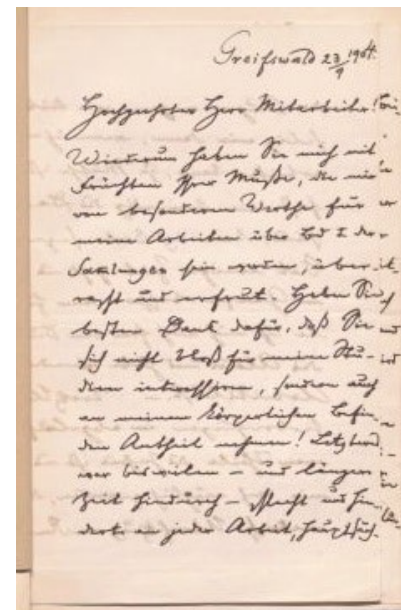 Greifswald 23/9 1904.
Hochgeehrter Herr Mitarbeiter!
Wiederum haben Sie mich mit
Früchten Ihrer Muße, die mir
von besonderem Werthe für
meine Arbeiten über Bd I der
Samlungen sein werden, über-
rascht und erfreut. Haben Sie
besten Dank dafür, daß Sie
sich nicht bloß für meine Stu-
dien interessiren, sondern auch
an meinem körperlichen Befin-
den Antheil nehmen! Letzteres
war bisweilen – und längere
Zeit hindurch – schlecht und hin-
derte an jeder Arbeit, hauptsäch-